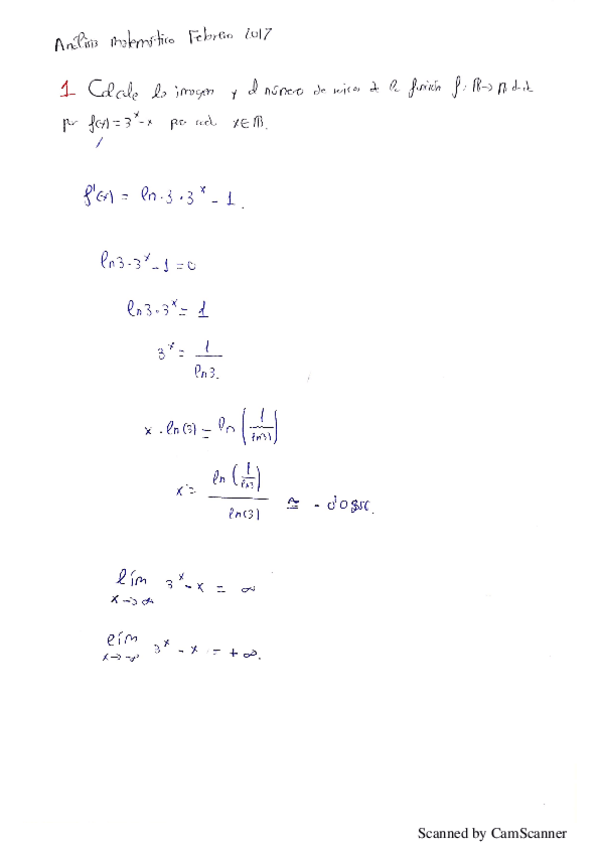 Análisis Matemático Febrero 2017
1 Calcule la imagen y el número de raíces de la función f: ℝ→ℝ dada
por f(x) = 3^x - x para cada x∈ℝ.
f'(x) = ln·3·3^x - 1.
ln3·3^x - 1 = 0
ln3·3^x = 1
3^x = 1/ln3.
x·ln(3) = ln(1/ln(3))
x = ln(1/ln3)/ln(3) ≅ -0'0856.
lím x→∞ 3^x - x = ∞
lím x→-∞ 3^x - x = +∞.
Scanned by CamScanner